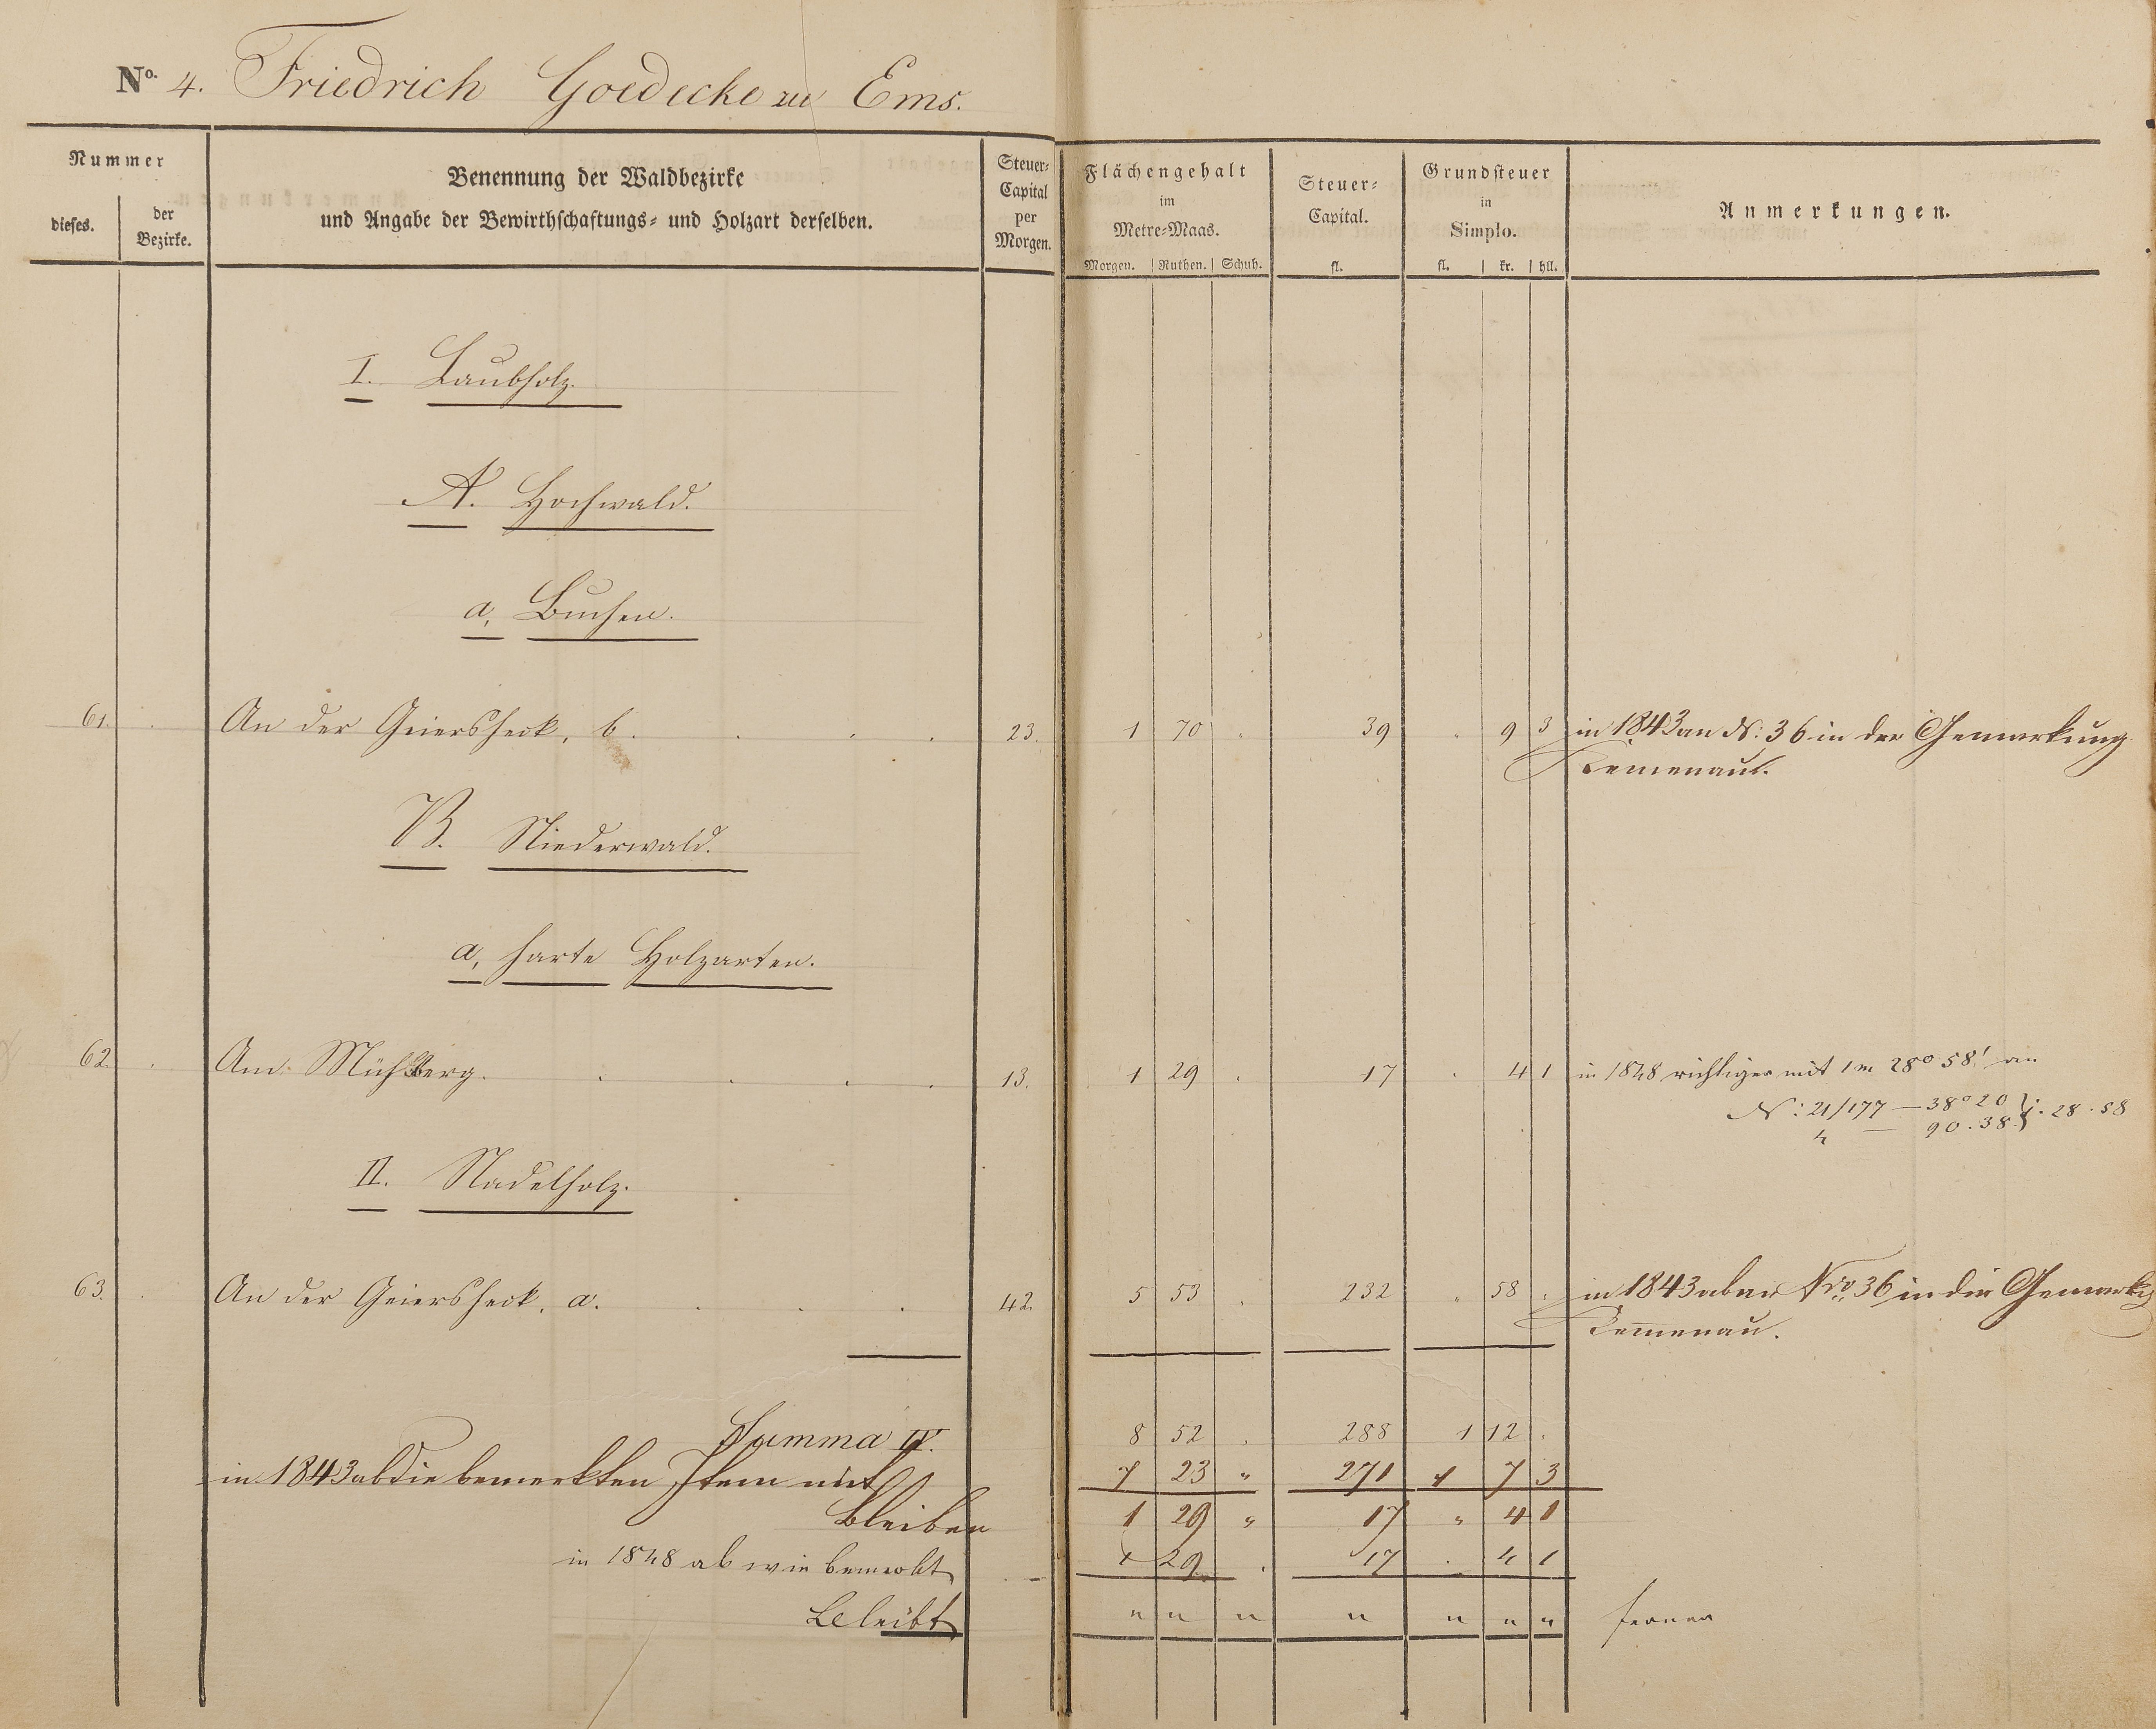 No. 4. Friedrich Goedecke zu Ems.
Nummer
dieses.
der Bezirke.
Benennung der Waldbezirke
und Angabe der Bewirthschaftungs- und Holzart derselben.
Steuer-
Capital
per
Morgen.
Flächengehalt
im
Metre-Maas.
Morgen. Ruthen. Schuh.
Steuer-
Capital.
fl.
Grundsteuer
in
Simplo.
fl. kr. hll.
Anmerkungen.
I. Laubholz.
A. Hochwald.
a, Buchen.
61. An der Geiersheck, b. 23. 1 70 . 39 . 9 3 in 1843 an N: 36 in der Gemarkung
Kemenau.
B. Niederwald.
a, harte Holzarten.
62. Am Mühlberg. 13. 1 29 . 17 . 4 1 in 1848 richtiger mit 1 m 28° 58' an
N: 21/177 — 38° 20 } 1. 28. 58
4 — 90. 38
II. Nadelholz.
63. An der Geiersheck, a. 42. 5 53 . 232 . 58 . in 1843 ab an Nro 36 in der Gemarkg
Kemmenau.
Summa IV. 8 52 . 288 1 12 .
in 1843 ab die bemerkten Item mit 7 23 " 271 1 7 3
Bleiben 1 29 " 17 " 4 1
in 1848 ab wie bemerkt 1 29 . 17 . 4 1
Bleibt " " " " " " " ferner